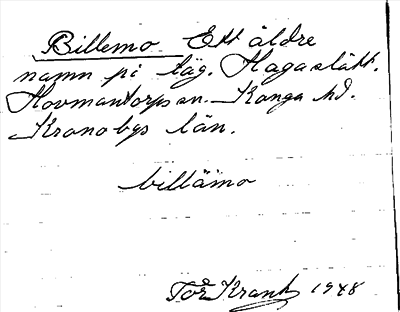 Billemo Ett äldre
namn på läg. Hagaslätt.
Hovmantorps sn. Konga hd.
Kronobgs län.
billämo
Tor Krant 1948